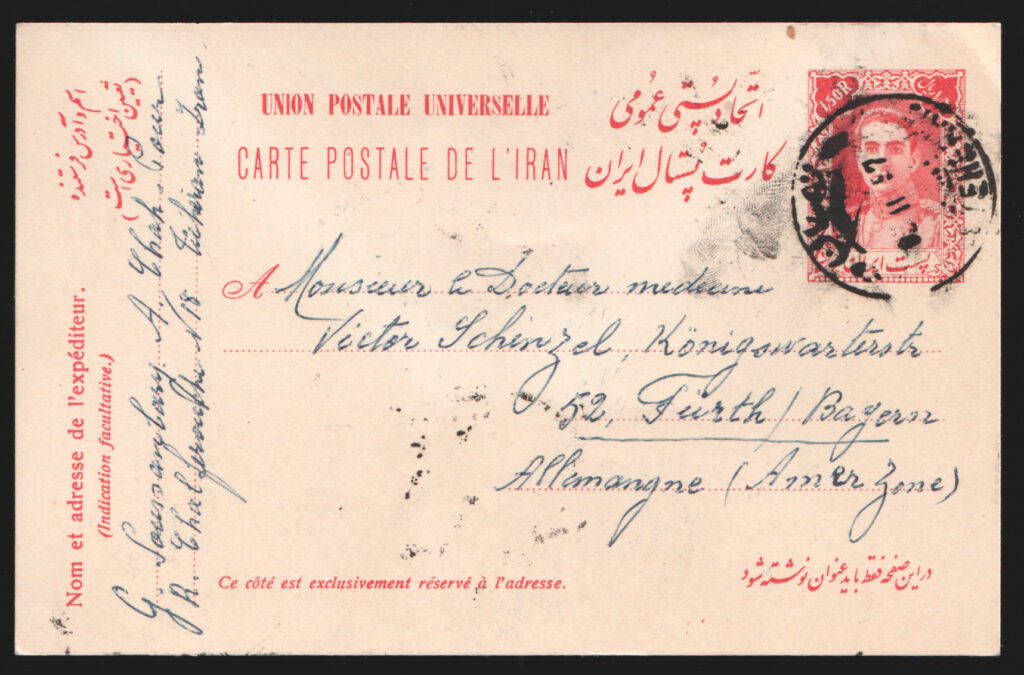 UNION POSTALE UNIVERSELLE
اتّحاد پُستی عمُومی
CARTE POSTALE DE L'IRAN
کارت پُستال ایران
1,50R
ریال
پست ایران
A Monsieur le Docteur medecine
Victor Schinzel, Königswarterstr
52, Fürth / Bayern
Allemangne (Amer Zone)
Ce côté est exclusivement réservé à l'adresse.
در این صفحه فقط باید عنوان نوشته شود
اسم و آدرس فرستنده
(تعیین اختیاری است)
Nom et adresse de l'expéditeur.
(Indication facultative.)
G. A. Chah
R. N 18 Téhéran Iran